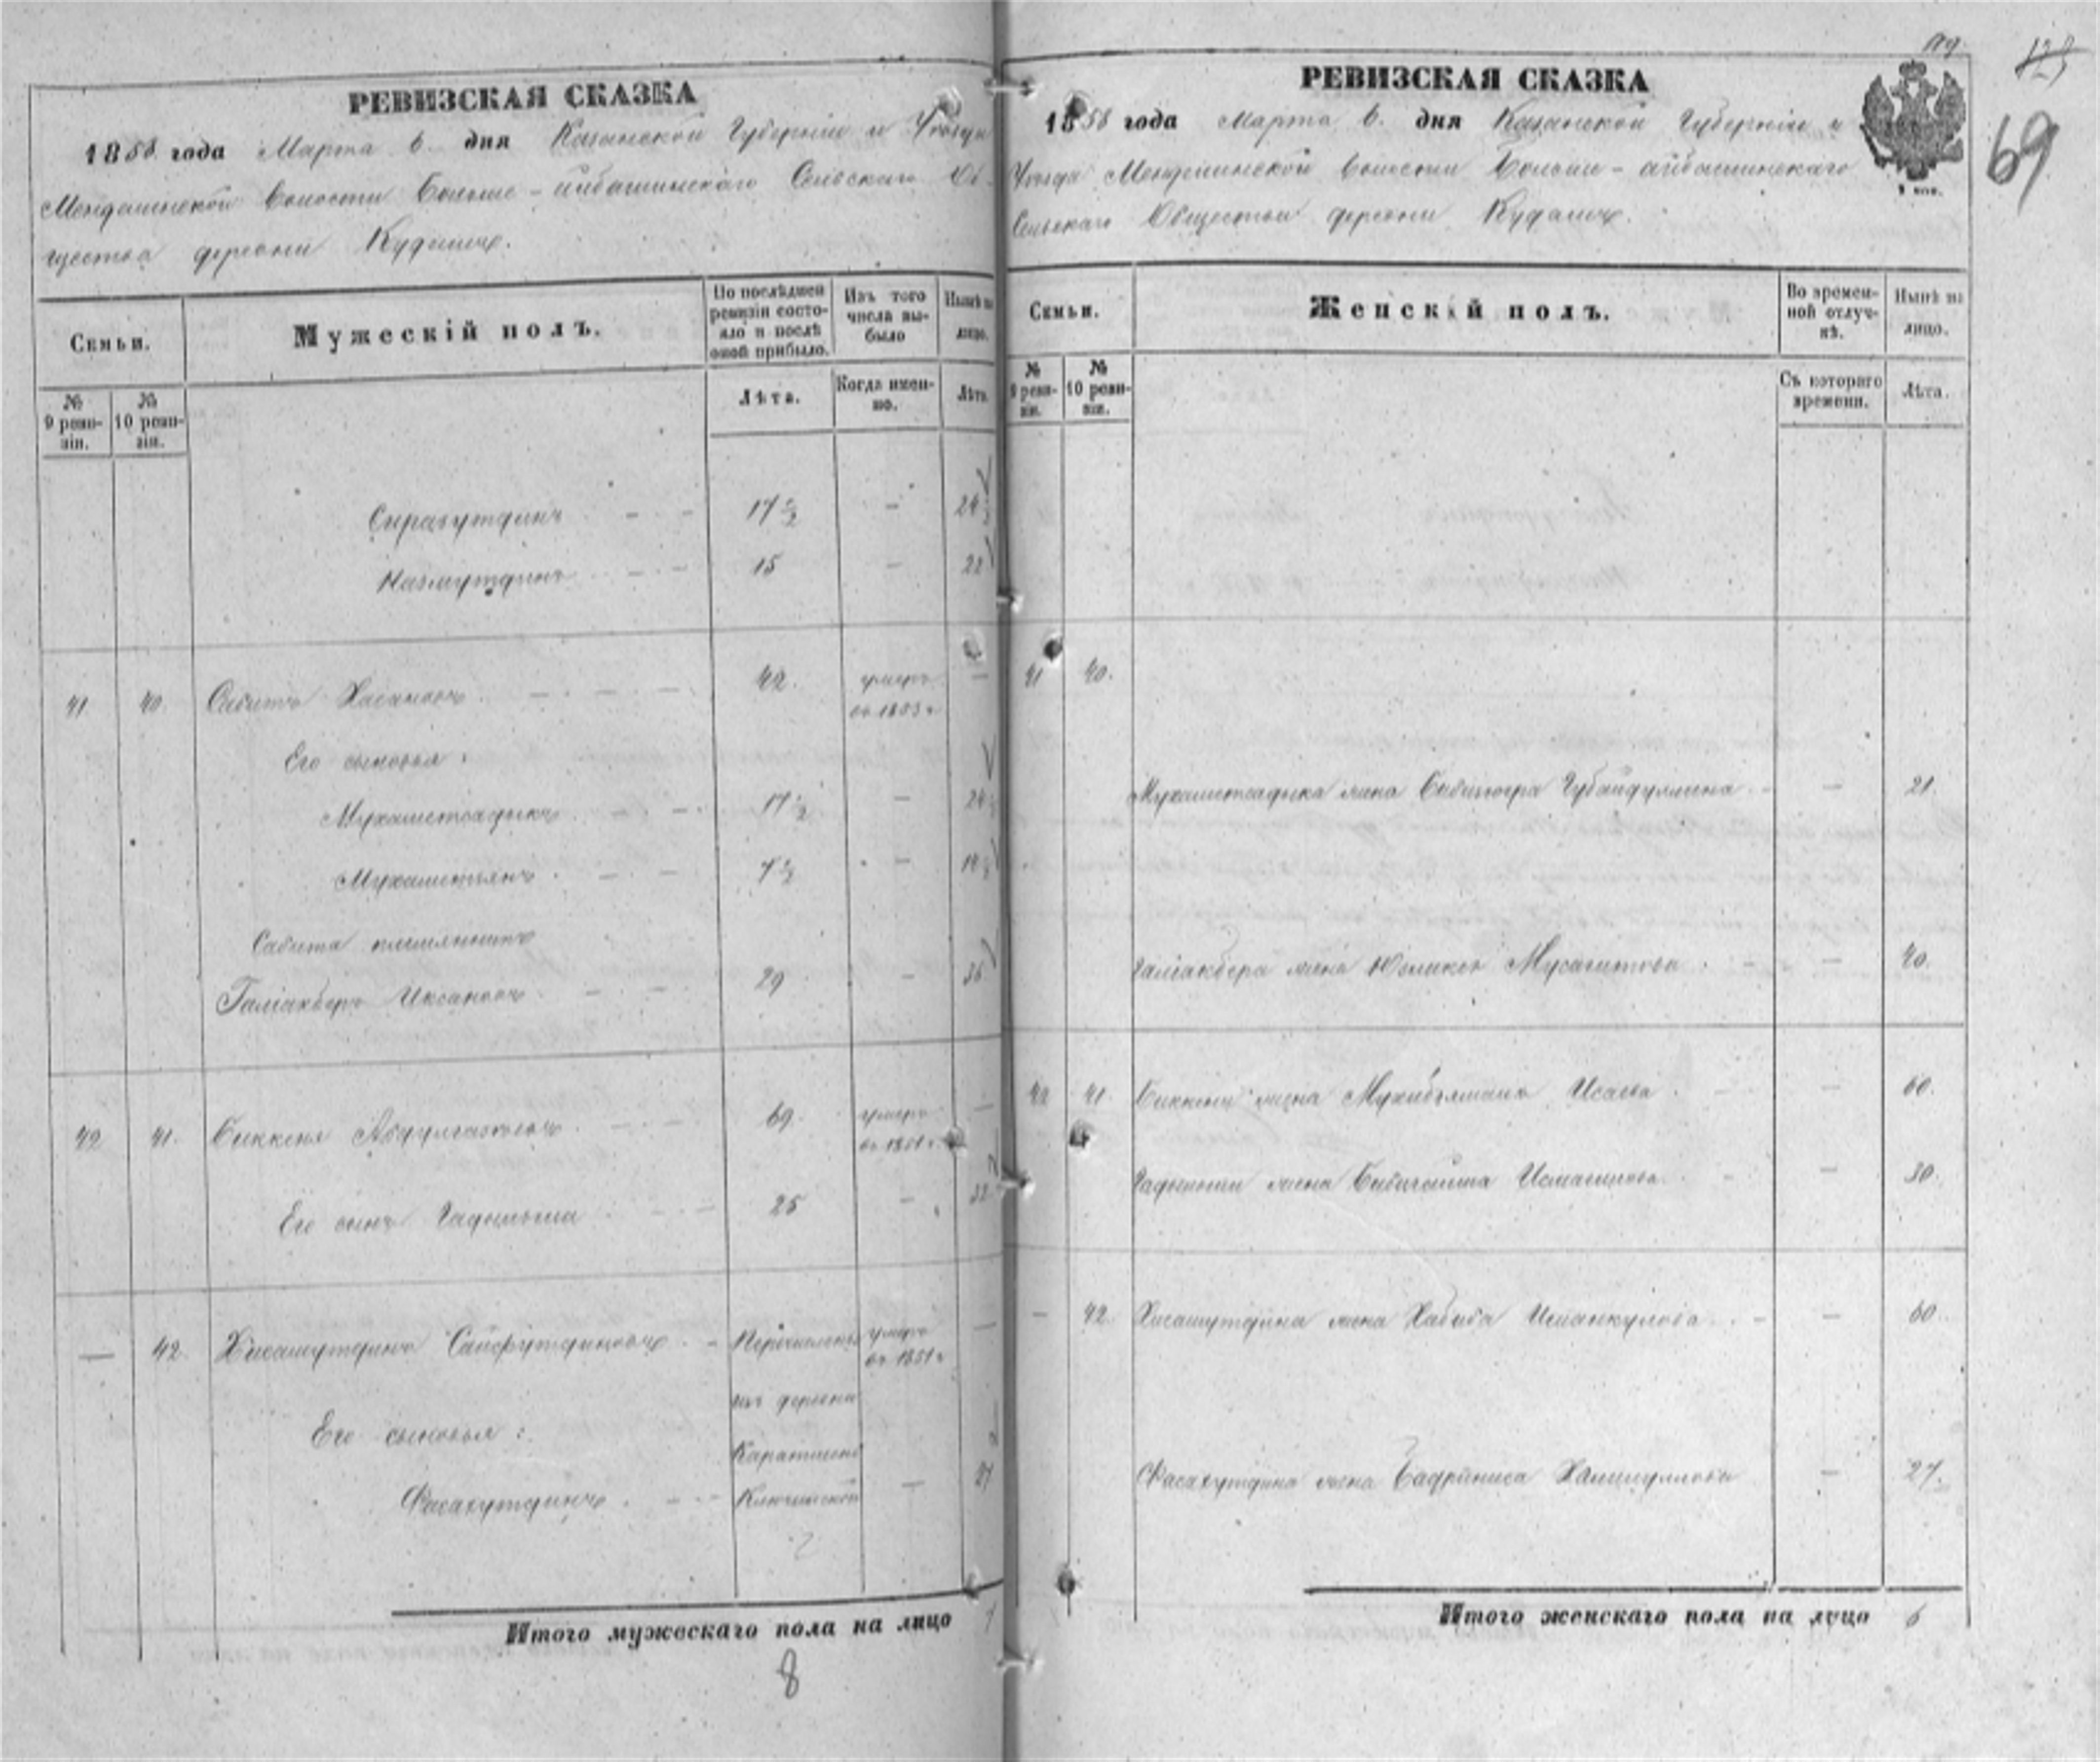 РЕВИЗСКАЯ СКАЗКА
1858 года Марта 6. дня Казанской Губерніи и Уѣзда
Больше-айбашинскаго Сельскаго Об-
щества деревни
Семьи.
Мужескій полъ.
По послѣдней ревизіи состояло и послѣ оной прибыло.
Изъ того числа выбыло
Нынѣ на лицо.
№ 9 ревизіи.
№ 10 ревизіи.
Лѣта.
Когда именно.
Лѣта.
Сиразутдинъ 17 1/2 — 24 1/2
Назмутдинъ 15 — 22
41 40. Сабитъ Хасановъ 42. умеръ —
въ 1853 г
Его сыновья:
Мухаметсадыкъ 17 1/2 — 24 1/2
Мухаметзянъ 7 1/2 — 14 1/2
Сабита племянникъ
Галіакберъ Ихсановъ 29 — 36
42 41. Биккеня 69. умеръ —
въ 1851 г
Его сынъ 25 — 32
— 42. Хисамутдинъ Сайфутдиновъ Перечисленъ умеръ —
въ 1851 г
изъ деревни
Его сыновья:
Фасахутдинъ Ключинской — 27
Итого мужескаго пола на лицо 7
8
119
69
РЕВИЗСКАЯ СКАЗКА
1858 года Марта 6. дня Казанской Губерніи и
Уѣзда Больше-айбашинскаго
Сельскаго Общества деревни
Семьи.
Женскій полъ.
Во временной отлучкѣ.
Нынѣ на лицо.
№ 9 ревизіи.
№ 10 ревизіи.
Съ котораго времени.
Лѣта.
41 40.
Мухаметсадыка жена Губайдуллина — 21.
Галіакбера жена Мусагитова — 40.
42 41. Биккени жена Исаева — 60.
жена Исмагилова — 30.
— 42. Хисамутдина жена Хабиба — 60.
Фасахутдина жена Бадриниса — 27.
Итого женскаго пола на лицо 6